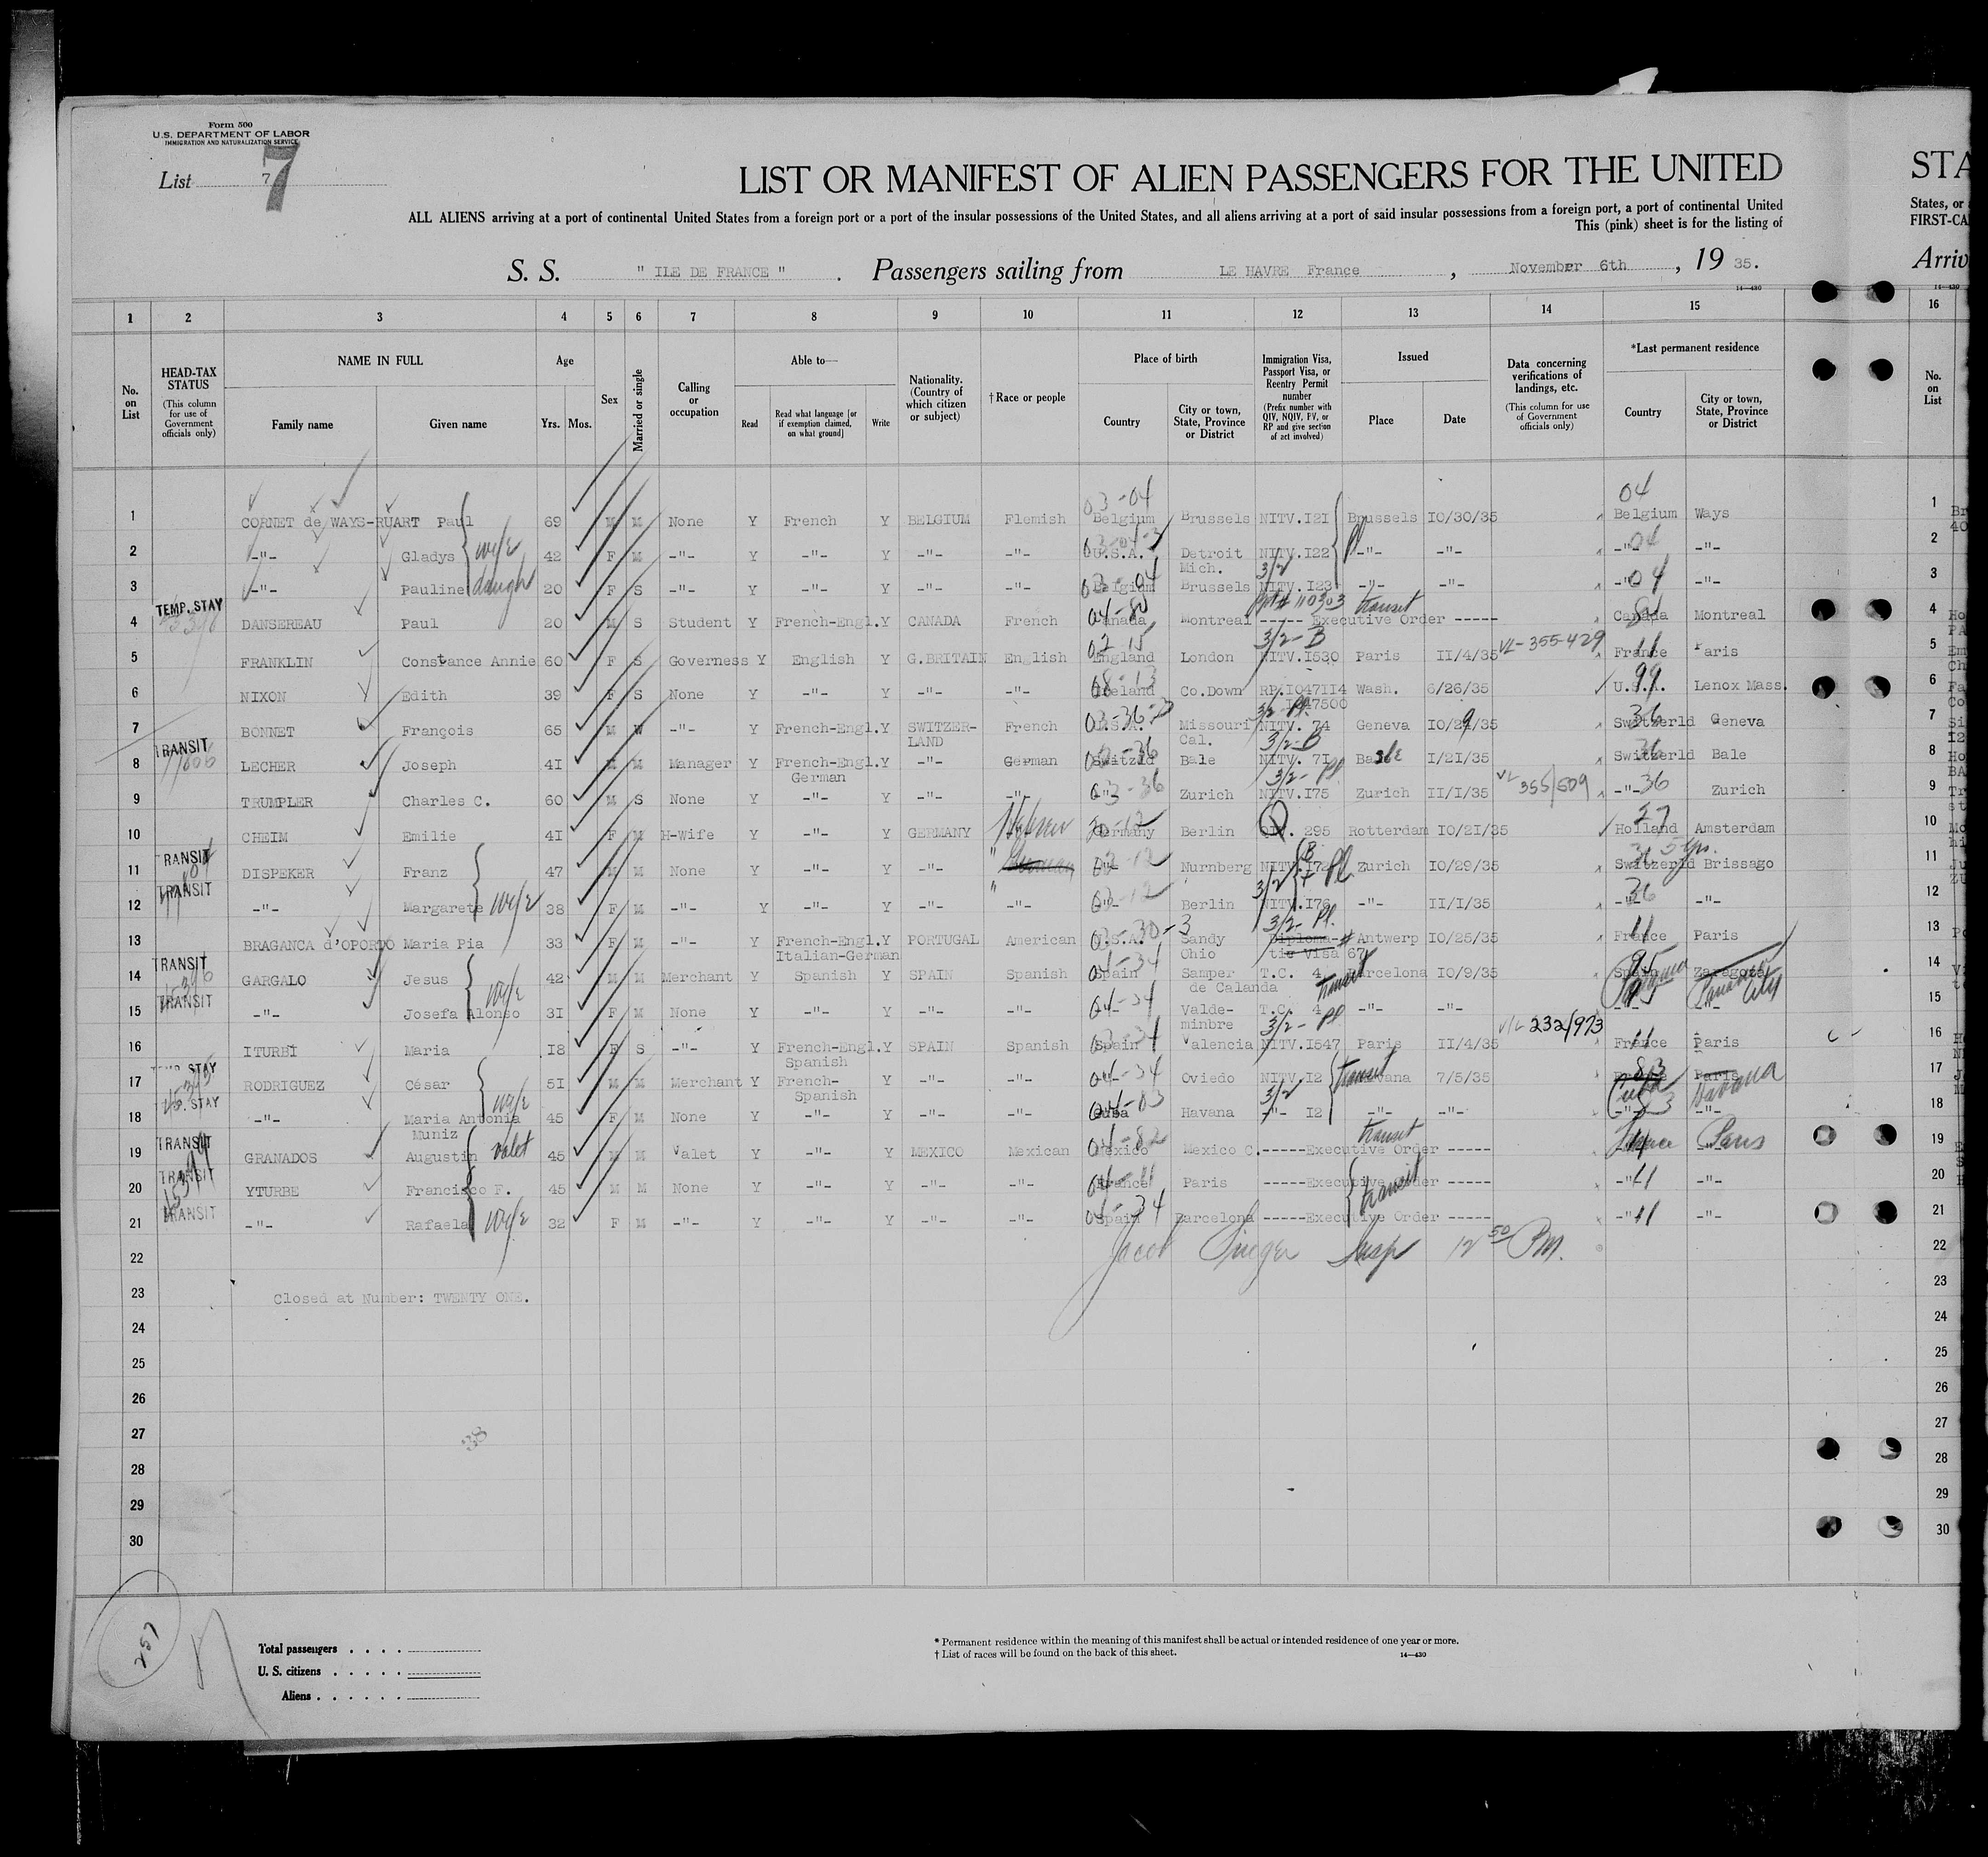 Form 500
U.S. DEPARTMENT OF LABOR
IMMIGRATION AND NATURALIZATION SERVICE
List 7
7
LIST OR MANIFEST OF ALIEN PASSENGERS FOR THE UNITED STA
ALL ALIENS arriving at a port of continental United States from a foreign port or a port of the insular possessions of the United States, and all aliens arriving at a port of said insular possessions from a foreign port, a port of continental United States, or
This (pink) sheet is for the listing of FIRST-CA
S. S. " ILE DE FRANCE " . Passengers sailing from LE HAVRE France , November 6th , 19 35. Arriv
14—430
1 2 3 4 5 6 7 8 9 10 11 12 13 14 15 16
No. on List
HEAD-TAX STATUS (This column for use of Government officials only)
NAME IN FULL Family name Given name
Age Yrs. Mos.
Sex
Married or single
Calling or occupation
Able to— Read Read what language [or if exemption claimed, on what ground] Write
Nationality. (Country of which citizen or subject)
† Race or people
Place of birth Country City or town, State, Province or District
Immigration Visa, Passport Visa, or Reentry Permit number (Prefix number with QIV, NQIV, PV, or RP and give section of act involved)
Issued Place Date
Data concerning verifications of landings, etc. (This column for use of Government officials only)
*Last permanent residence Country City or town, State, Province or District
No. on List
03-04 04
1 CORNET de WAYS-RUART Paul 69 M M None Y French Y BELGIUM Flemish Belgium Brussels NITV.I2I Brussels I0/30/35 Belgium Ways 1
2 -"- Gladys wife 42 F M -"- Y -"- Y -"- -"- U.S.A. Detroit Mich. NITV.I22 Pl -"- -"- -"- 04 -"- 2
3 -"- Pauline daugh 20 F S -"- Y -"- Y -"- -"- Belgium Brussels 3/2 NITV.I23 -"- -"- -"- 04 -"- 3
TEMP. STAY
4 DANSEREAU Paul 20 M S Student Y French-Engl. Y CANADA French Canada Montreal ----- Executive Order ----- transit Canada Montreal 4
5 FRANKLIN Constance Annie 60 F S Governess Y English Y G.BRITAIN English 02-15 England London 3/2-B NITV.I530 Paris II/4/35 VL-355-429 France 11 Paris 5
6 NIXON Edith 39 F S None Y -"- Y -"- -"- 08-13 Ireland Co.Down RP.I047II4 I047500 Wash. 6/26/35 U.S.A. 99 Lenox Mass. 6
7 BONNET François 65 M W -"- Y French-Engl. Y SWITZER-LAND French U.S.A. Missouri Cal. 3/2-Pl. NITV. 74 Geneva I0/29/35 36 Switzerld Geneva 7
TRANSIT
8 LECHER Joseph 4I M M Manager Y French-Engl. German Y -"- German Switzld Bale 3/2-B NITV. 7I Basle I/2I/35 36 Switzerld Bale 8
9 TRUMPLER Charles C. 60 M S None Y -"- Y -"- -"- 03-36 Zurich 3/2-Pl NITV.I75 Zurich II/I/35 VL 355/509 -"- 36 Zurich 9
10 CHEIM Emilie 4I F M H-Wife Y -"- Y GERMANY Hebrew Germany Berlin 295 Rotterdam I0/2I/35 27 Holland Amsterdam 10
TRANSIT
11 DISPEKER Franz 47 M M None Y -"- Y -"- " German Nurnberg NITV.I72 Pl Zurich I0/29/35 Switzerld Brissago 11
TRANSIT
12 -"- Margarete wife 38 F M -"- Y -"- Y -"- " -"- Berlin 3/2 NITV.I76 -"- II/I/35 36 -"- -"- 12
13 BRAGANCA d'OPORTO Maria Pia 33 F M -"- Y French-Engl. Italian-German Y PORTUGAL American U.S.A. Sandy Ohio 3/2-Pl. Diploma-tic Visa 67 Antwerp I0/25/35 11 France Paris 13
TRANSIT
14 GARGALO Jesus 42 M M Merchant Y Spanish Y SPAIN Spanish 04-34 Spain Samper de Calanda T.C. 4 transit Barcelona I0/9/35 95 Spain Panama Zaragoza Panama City 14
TRANSIT
15 -"- Josefa Alonso wife 3I F M None Y -"- Y -"- -"- 04-34 Valde-minbre T.C. 4 -"- -"- -"- 95 -"- 15
16 ITURBI Maria I8 F S -"- Y French-Engl. Spanish Y SPAIN Spanish Spain Valencia 3/2-Pl NITV.I547 Paris II/4/35 VL 232/973 11 France Paris 16
STAY
17 RODRIGUEZ César 5I M M Merchant Y French-Spanish Y -"- -"- 04-34 Oviedo NITV.I2 transit Havana 7/5/35 83 Cuba Paris Havana 17
STAY
18 -"- Maria Antonia Muniz wife 45 F M None Y -"- Y -"- -"- 04-83 Cuba Havana 3/2 -"- I2 -"- -"- -"- -"- 18
TRANSIT
19 GRANADOS Augustin valet 45 M M Valet Y -"- Y MEXICO Mexican 04-82 Mexico Mexico C. -----Executive Order ----- transit France Paris 19
TRANSIT
20 YTURBE Francisco F. 45 M M None Y -"- Y -"- -"- France Paris -----Executive Order ----- transit -"- 11 -"- 20
TRANSIT
21 -"- Rafaela wife 32 F M -"- Y -"- Y -"- -"- 04-34 Spain Barcelona -----Executive Order ----- -"- 11 -"- 21
22 Jacob Singer Insp 12 50 PM. 22
23 Closed at Number: TWENTY ONE. 23
24 24
25 25
26 26
27 38 27
28 28
29 29
30 30
257
Total passengers . . . .
U. S. citizens . . . . .
Aliens . . . . . .
* Permanent residence within the meaning of this manifest shall be actual or intended residence of one year or more.
† List of races will be found on the back of this sheet. 14—430